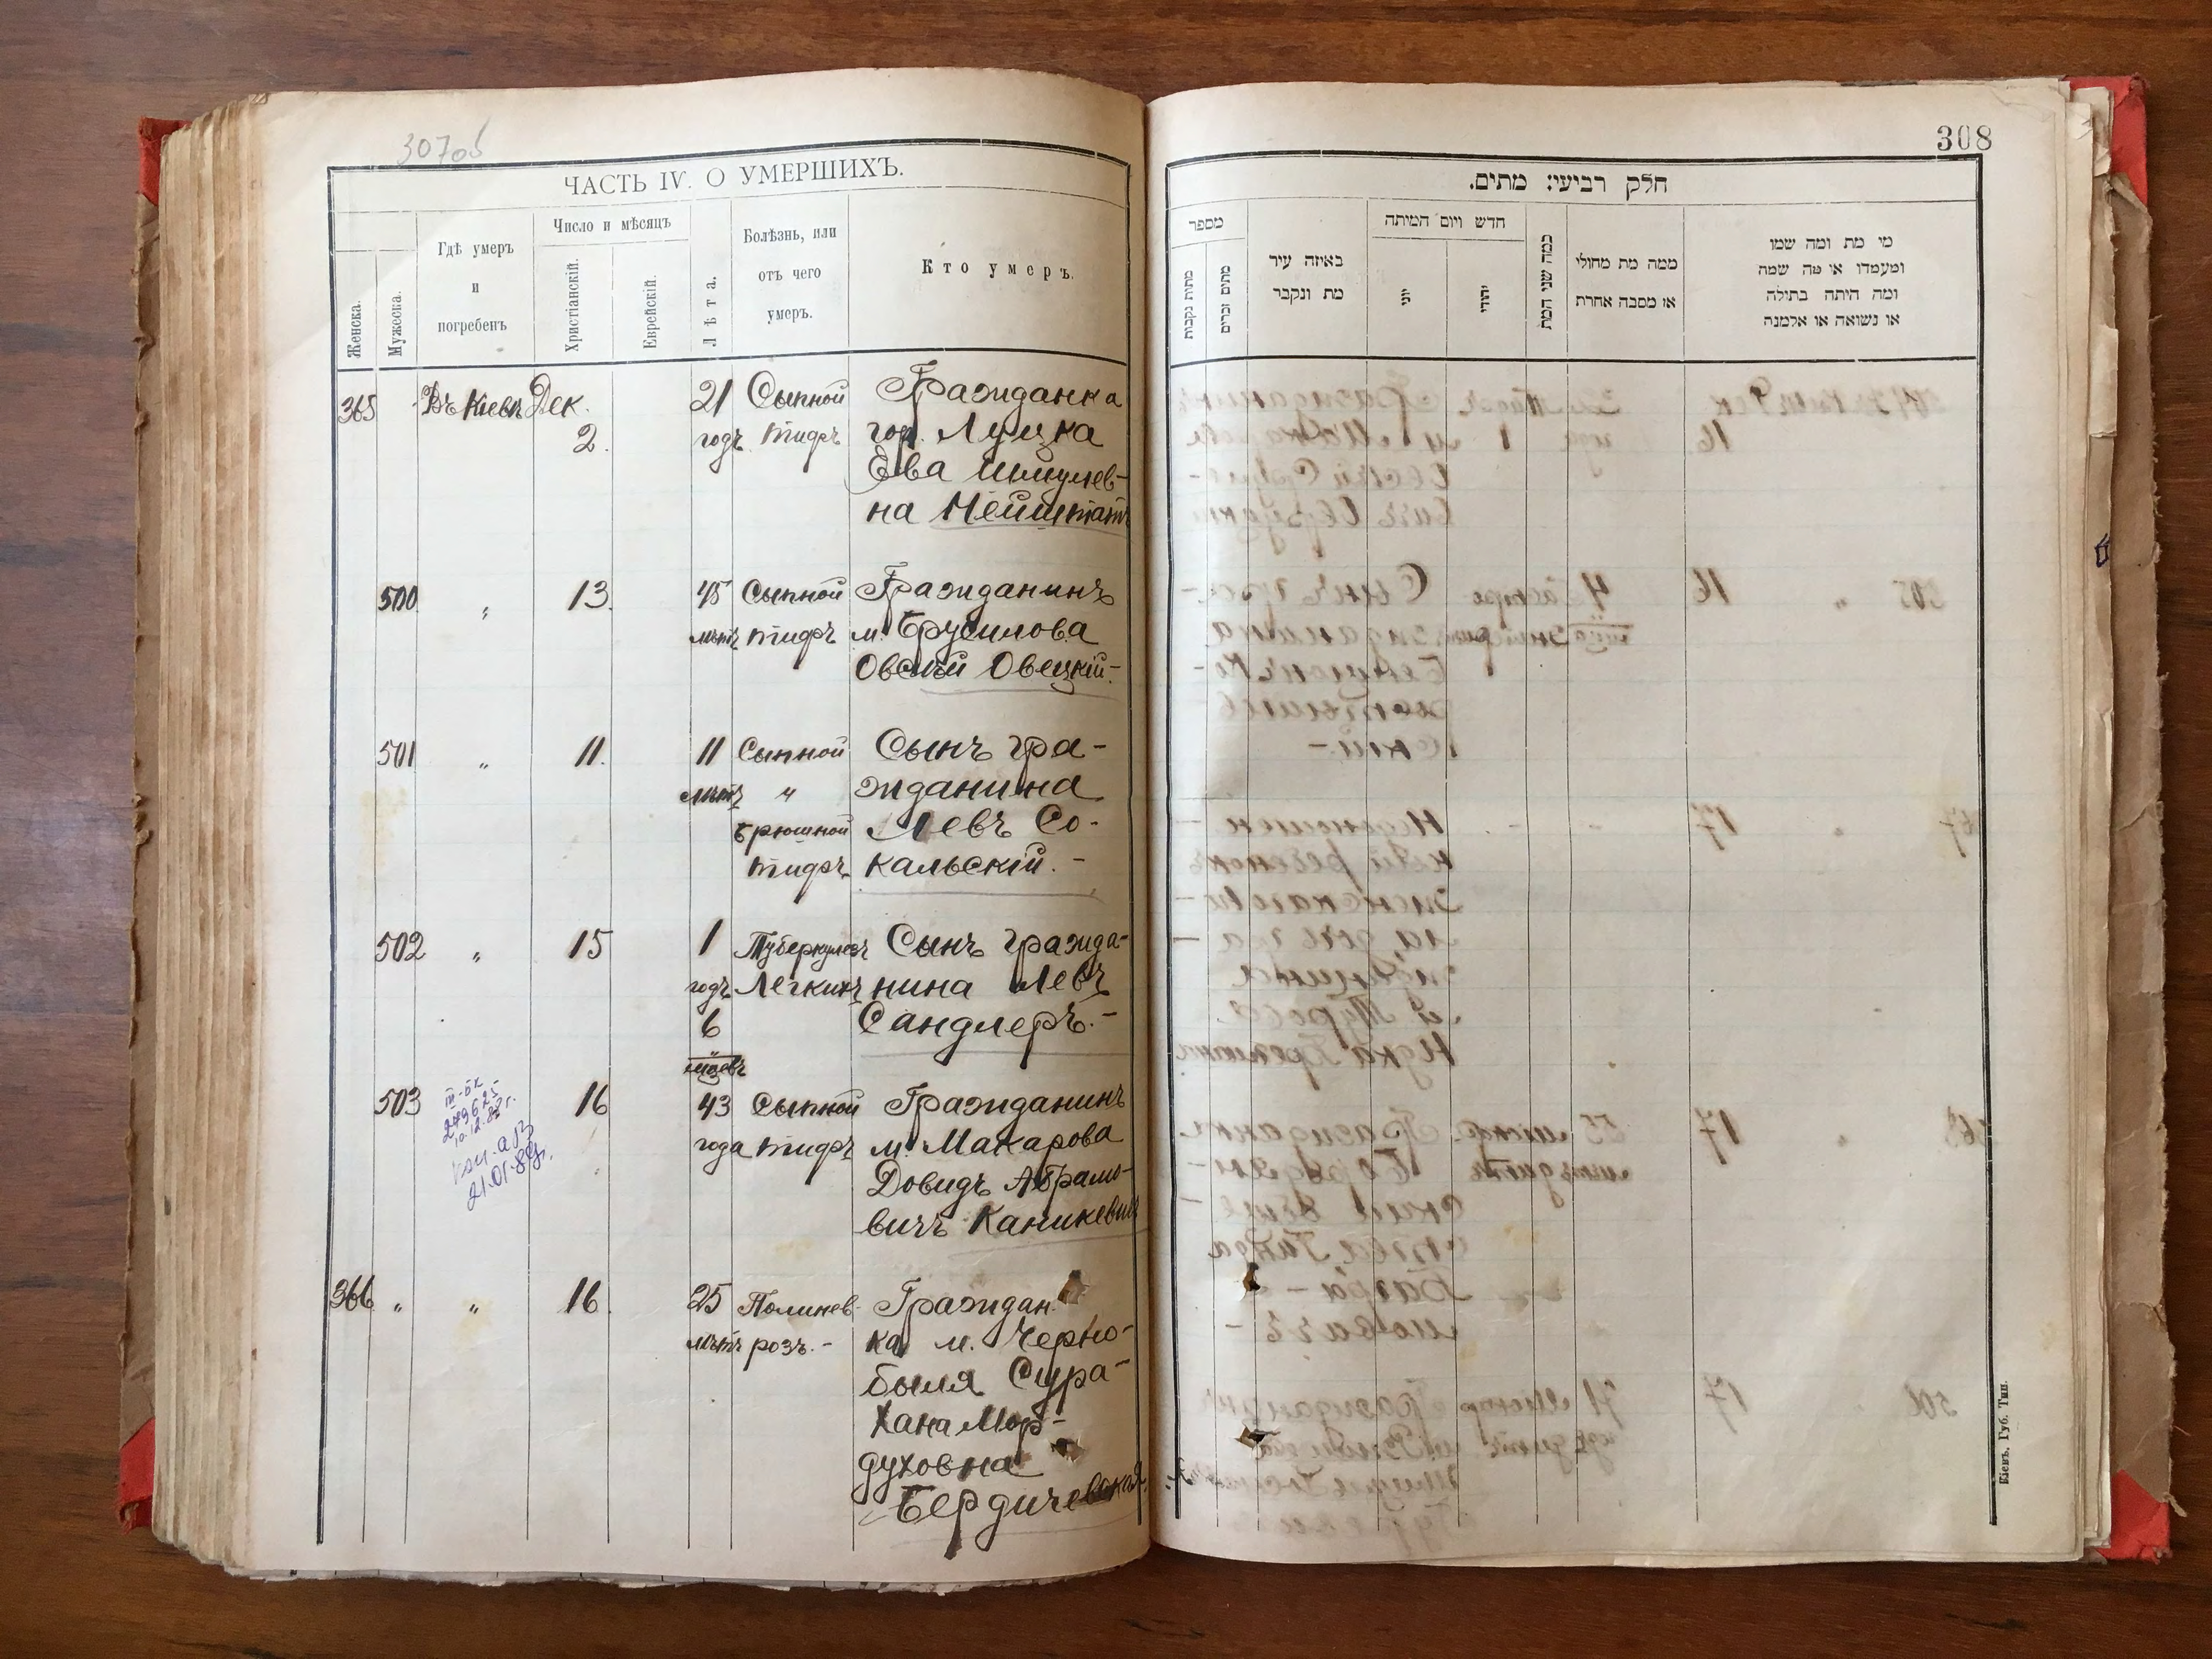 307об
ЧАСТЬ IV. О УМЕРШИХЪ.
Женска.
Мужеска.
Гдѣ умеръ
и
погребенъ
Число и мѣсяцъ
Христіанскій.
Еврейскій.
Лѣта.
Болѣзнь, или
отъ чего
умеръ.
Кто умеръ.
365 Въ Кіевѣ Дек. 21 Сыпной Гражданка
2. годъ тифъ гор. Луцка
Ева Шмулев-
на Нейштатъ
500 „ 13. 45 Сыпной Гражданинъ
лѣтъ тифъ м. Брусилова
Овсѣй Овецкій.-
501 „ 11. 11 Сыпной Сынъ гра-
лѣтъ и жданина
брюшной Левъ Со-
тифъ кальскій. -
502 „ 15 1 Туберкулезъ Сынъ гражда-
годъ Легкихъ нина Левъ
6 Сандлеръ.-
мѣсяцевъ
503 16 43 Сыпной Гражданинъ
года тифъ м. Макарова
Довидъ Абрамо-
вичъ Каникевич
21.01.88г.
366 „ „ 16 25 Полинев- Граждан-
лѣтъ розъ.- ка м. Черно-
быля Сура-
Хана Мор-
духовна
Бердичевская.
308
חלק רביעי: מתים.
מספר
מתות נקבות
מתים זכרים
באיזה עיר
מת ונקבר
חדש ויום המיתה
יוני
יהודי
כמה שני המת
ממה מת מחולי
או מסבה אחרת
מי מת ומה שמו
ומעמדו או מה שמה
ומה היתה בתולה
או נשואה או אלמנה
Кіевъ. Губ. Тип.